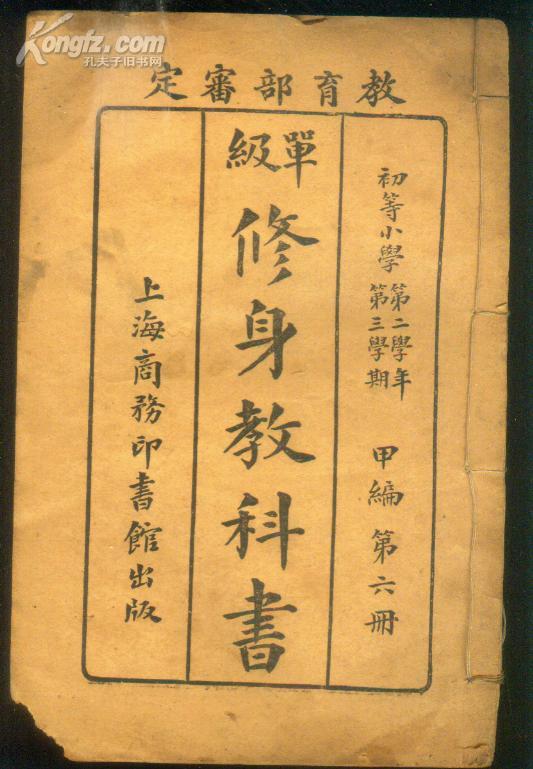 Kongfz.com
孔夫子旧书网
教育部審定
初等小學 第二學年 第三學期 甲編 第六冊
單級 修身教科書
上海商務印書館出版